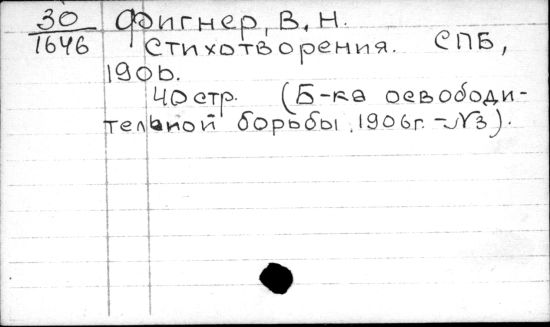 30 Фигнер, В. Н.
1646 Стихотворения. СПБ,
1906.
40 стр. (Б-ка освободи-
тельной борьбы, 1906г. - №3).